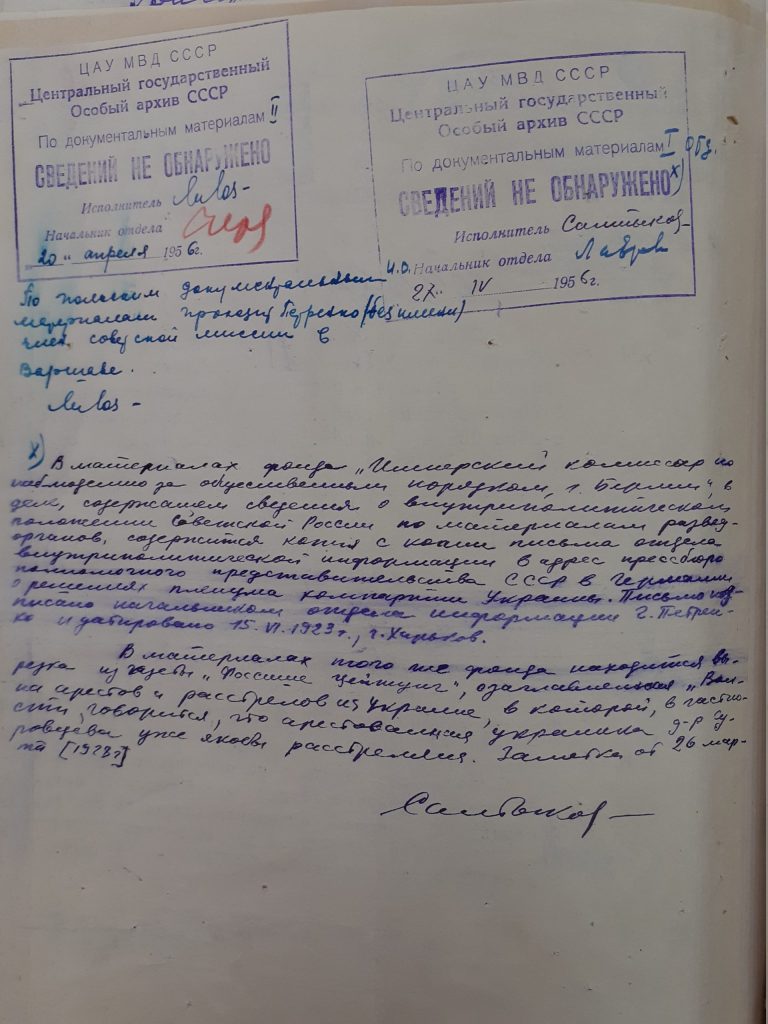 ЦАУ МВД СССР
Центральный государственный
Особый архив СССР
По документальным материалам II
СВЕДЕНИЙ НЕ ОБНАРУЖЕНО
Исполнитель
Начальник отдела
"20" апреля 1956 г.
ЦАУ МВД СССР
Центральный государственный
Особый архив СССР
По документальным материалам I отд.
СВЕДЕНИЙ НЕ ОБНАРУЖЕНО х)
Исполнитель Салтыков
И.О. Начальник отдела Лавров
27" IV 1956 г.
По польским документальным
материалам проходит Петренко (без имени)
член советской миссии в
Варшаве.
х) В материалах фонда „Имперский комиссар по
наблюдению за общественным порядком, г. Берлин", в
деле, содержащем сведения о внутриполитическом
положении Советской России по материалам развед-
органов, содержится копия с копии письма отдела
внутриполитической информации в адрес прессбюро
полномочного представительства СССР в Германии
о решениях пленума компартии Украины. Письмо под-
писано начальником отдела информации Г. Петрен-
ко и датировано 15.VI.1923 г., г. Харьков.
В материалах того же фонда находится вы-
резка из газеты „Фоссише Цейтунг", озаглавленная „Вол-
на арестов и расстрелов на Украине, в которой, в частно-
сти, говорится, что арестованная украинка д-р
уже якобы расстреляна. Заметка от 26 мар-
та [1923 г]
Салтыков